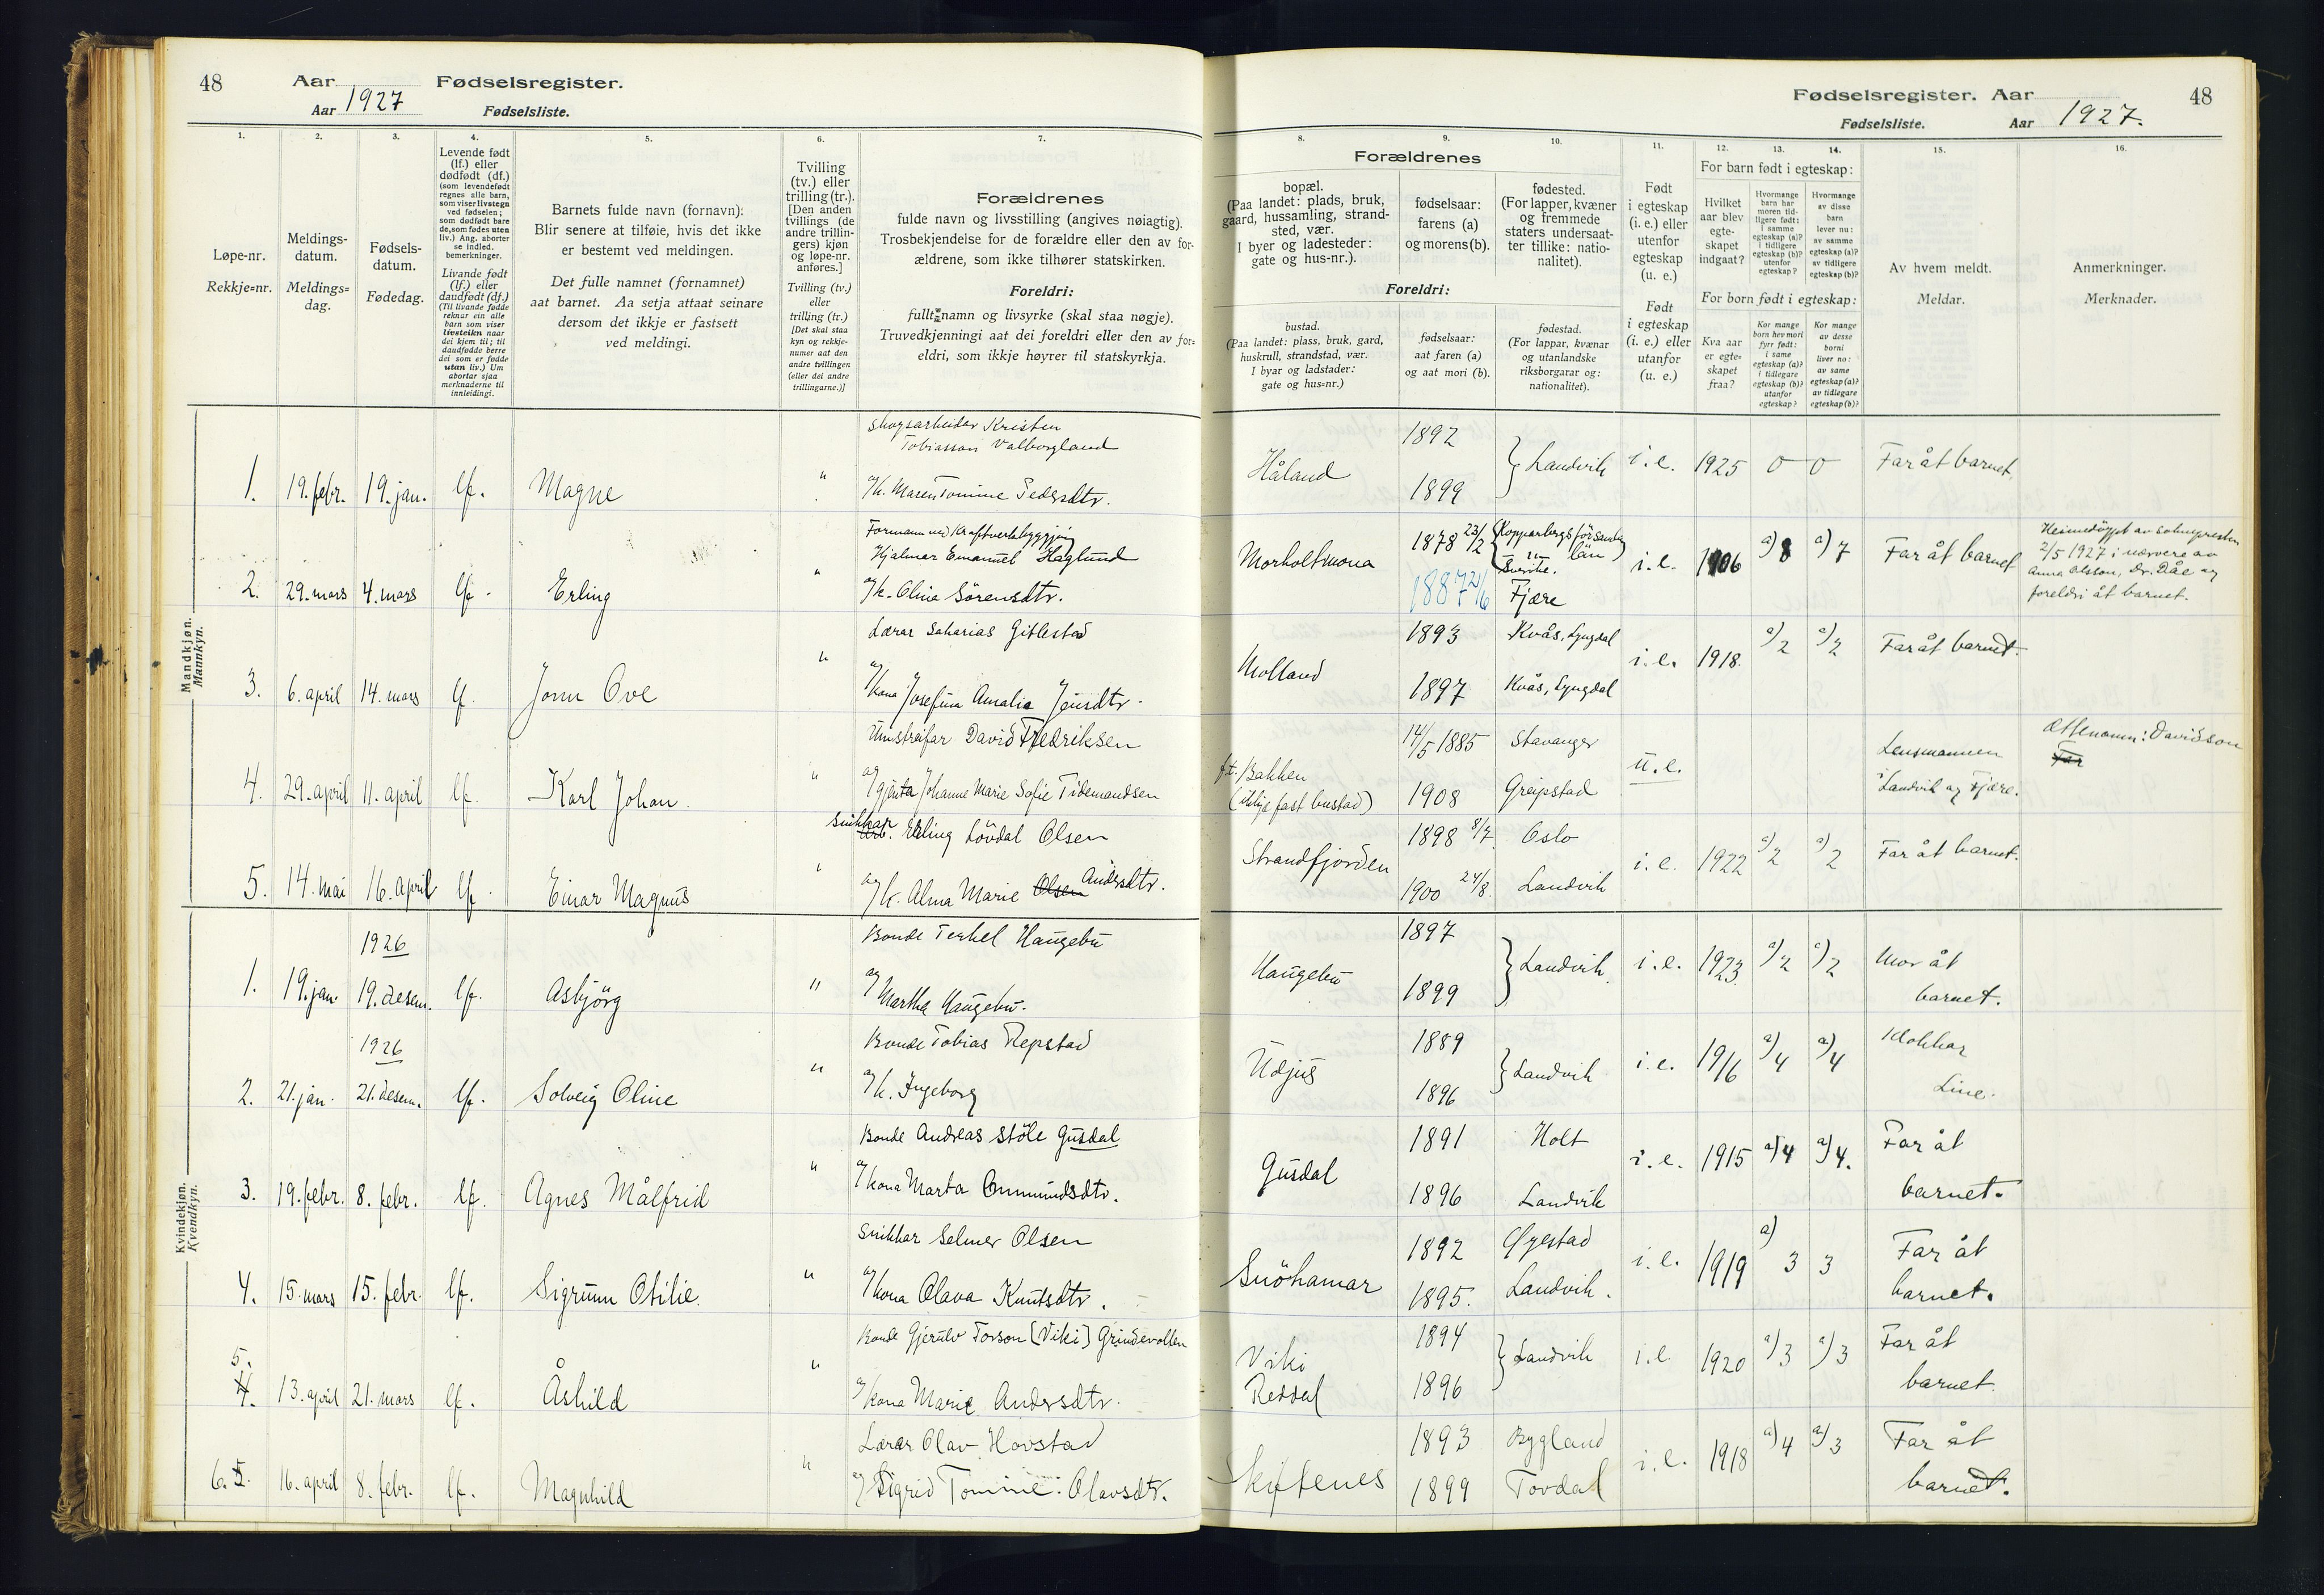 48
Aar
Fødselsregister.
Aar 1927
Fødselsliste.
1.
2.
3.
4.
5.
6.
7.
Løpe-nr.
Rekkje-nr.
Meldings-
datum.
Meldings-
dag.
Fødsels-
datum.
Fødedag.
Levende født
(lf.) eller
dødfødt (df.)
(som levendefødt
regnes alle barn,
som viser livstegn
ved fødselen;
som dødfødt bare
de, som fødes uten
liv.) Ang. aborter
se indled.
bemerkninger.
Livande født
(lf.) eller
daudfødt (df.)
(Til livande fødde
reknar ein alle
barn som viser
livsteikn naar
dei kjem til; til
daudfødde berre
dei som er fødde
utan liv.) Um
abortar sjaa
merknaderne til
innleidingi.
Barnets fulde navn (fornavn):
Blir senere at tilføie, hvis det ikke
er bestemt ved meldingen.
Det fulle namnet (fornamnet)
aat barnet. Aa setja attaat seinare
dersom det ikkje er fastsett
ved meldingi.
Tvilling
(tv.) eller
trilling (tr.).
[Den anden
tvillings (de
andre trillin-
gers) kjøn
og løpe-nr.
anføres.]
Tvilling (tv.)
eller
trilling (tr.)
[Det skal staa
kyn og rekkje-
numer aat den
andre tvillingen
(eller dei andre
trillingarne.)]
Forældrenes
fulde navn og livsstilling (angives nøiagtig).
Trosbekjendelse for de forældre eller den av for-
ældrene, som ikke tilhører statskirken.
Foreldri:
fullt namn og livsyrke (skal staa nøgje).
Truvedkjenningi aat dei foreldri eller den av for-
eldri, som ikkje høyrer til statskyrkja.
Mandkjøn.
Mannkyn.
Skogsarbeidar Kristen
Tobiasson Valborgland
1. 19. febr. 19. jan. lf. Magne " og k. Maren Tomine Pedersdtr.
Formann ved Kraftverkbyggjing
Hjalmar Emanuel Haglund
2. 29. mars 4. mars lf. Erling " og k. Oline Sörensdtr.
Lærar Sakarias Gitlestad
3. 6. april 14. mars lf Jonn Ove " og kona Josefina Amalia Jensdtr.
Umstreifar David Fredriksen
4. 29. april 11. april lf. Karl Johan. " og gjenta Johanne Marie Sofie Tidemandsen
Snikkar Erling Lövdal Olsen
5. 14. mai 16. april lf. Einar Magnus " og k. Alma Marie Olsen Andersdtr.
Kvindekjøn.
Kvendkyn.
1926
Bonde Terkel Haugebu
1. 19. jan. 19. desem. lf. Asbjörg " og Martha Haugebu.
1926
Bonde Tobias Repstad
2. 21. jan. 21. desem. lf. Solveig Oline " og k. Ingeborg
Bonde Andreas Stöle Gusdal
3. 19. febr. 8. febr. lf. Agnes Målfrid " og kona Marta Ommundsdtr.
Snikkar Selmer Olsen
4. 15. mars 15. febr. lf. Sigrunn Otilie. " og kona Olava Knutsdtr.
Bonde Gjerulv Torson (Viki) Grindevollen
5. 4. 13. april 21. mars lf. Åshild " og kona Marie Andersdtr.
Lærar Olav Hovstad
6. 5. 16. april 8. febr. lf. Magnhild " og Sigrid Tomine Olavsdtr.
Fødselsregister. Aar
48
Fødselsliste.
Aar 1927.
8.
9.
10.
11.
12.
13.
14.
15.
16.
Forældrenes
bopæl.
(Paa landet: plads, bruk,
gaard, hussamling, strand-
sted, vær.
I byer og ladesteder:
gate og hus-nr.).
fødselsaar:
farens (a)
og morens (b).
fødested.
(For lapper, kvæner
og fremmede
staters undersaat-
ter tillike: natio-
nalitet).
Foreldri:
bustad.
(Paa landet: plass, bruk, gard,
huskrull, strandstad, vær.
I byar og ladstader:
gate og hus-nr.)
fødselsaar:
aat faren (a)
og aat mori (b).
fødestad.
(For lappar, kvænar
og utanlandske
riksborgarar og:
nationalitet).
Født
i egteskap
(i. e.) eller
utenfor
egteskap
(u. e.)
Født
i egteskap
(i. e.) eller
utanfor
(u. e.)
For barn født i egteskap:
Hvilket
aar blev
egte-
skapet
indgaat?
Hvormange
barn har
moren tid-
ligere født:
i samme
egteskap (a)?
i tidligere
egteskap (b)?
utenfor
egteskap?
Hvormange
av disse
barn
lever nu:
av samme
egteskap (a)?
av tidligere
egteskap (b)?
For born født i egteskap:
Kva aar
er egte-
skapet
fraa?
Kor mange
born hev mori
fyrr født:
i same
egteskap (a)?
i tidlegare
egteskap (b)?
utanfor
egteskap?
Kor mange
av desse
borni
liver no:
av same
egteskap (a)?
av tidlegare
egteskap (b)?
Av hvem meldt.
Meldar.
Anmerkninger.
Merknader.
1892
Håland } Landvik i. e. 1925 0 0 Far åt barnet.
1899
1878 23/2 (Kopparbergs län) Sverike.
Morholtmona i. e. 1906 a) 8 a) 7 Far åt barnet
1887 21/6 Fjære
Heimedöypt av soknepresten
2/5 1927 i nærvere av
Anna Olsson, Dr. Dåe og
foreldri åt barnet.
1893 Kvås, Lyngdal
Molland i. e. 1918. a) 2 a) 2 Far åt barnet.
1897 Kvås, Lyngdal
14/5 1885 Stavanger
f.t. Bakken u. e. Lensmannen
(ikkje fast bustad) 1908 Greipstad i Landvik og Fjære.
Ættenamn: Davidson
Far
1898 8/7. Oslo
Strandfjorden i. e. 1922 a) 2 a) 2 Far åt barnet.
1900 24/8. Landvik
1897
Haugebu } Landvik i. e. 1923. a) 2 a) 2 Mor åt
1899 barnet.
1889
Udjus } Landvik i. e. 1916 a) 4 a) 4 Klokkar
1896 Line.
1891 Holt
Gusdal i. e. 1915 a) 4 a) 4. Far åt
1896 Landvik barnet.
1892 Øyestad
Snöhamar i. e. 1919 a) 3 3 Far åt
1895. Landvik. barnet.
1894
Viki } Landvik i. e. 1920 a) 3 a) 3 Far åt
Reddal 1896 barnet.
1893 Bygland
Skiftenes i. e. 1918 a) 4 a) 3 Far åt
1899 Tovdal barnet.